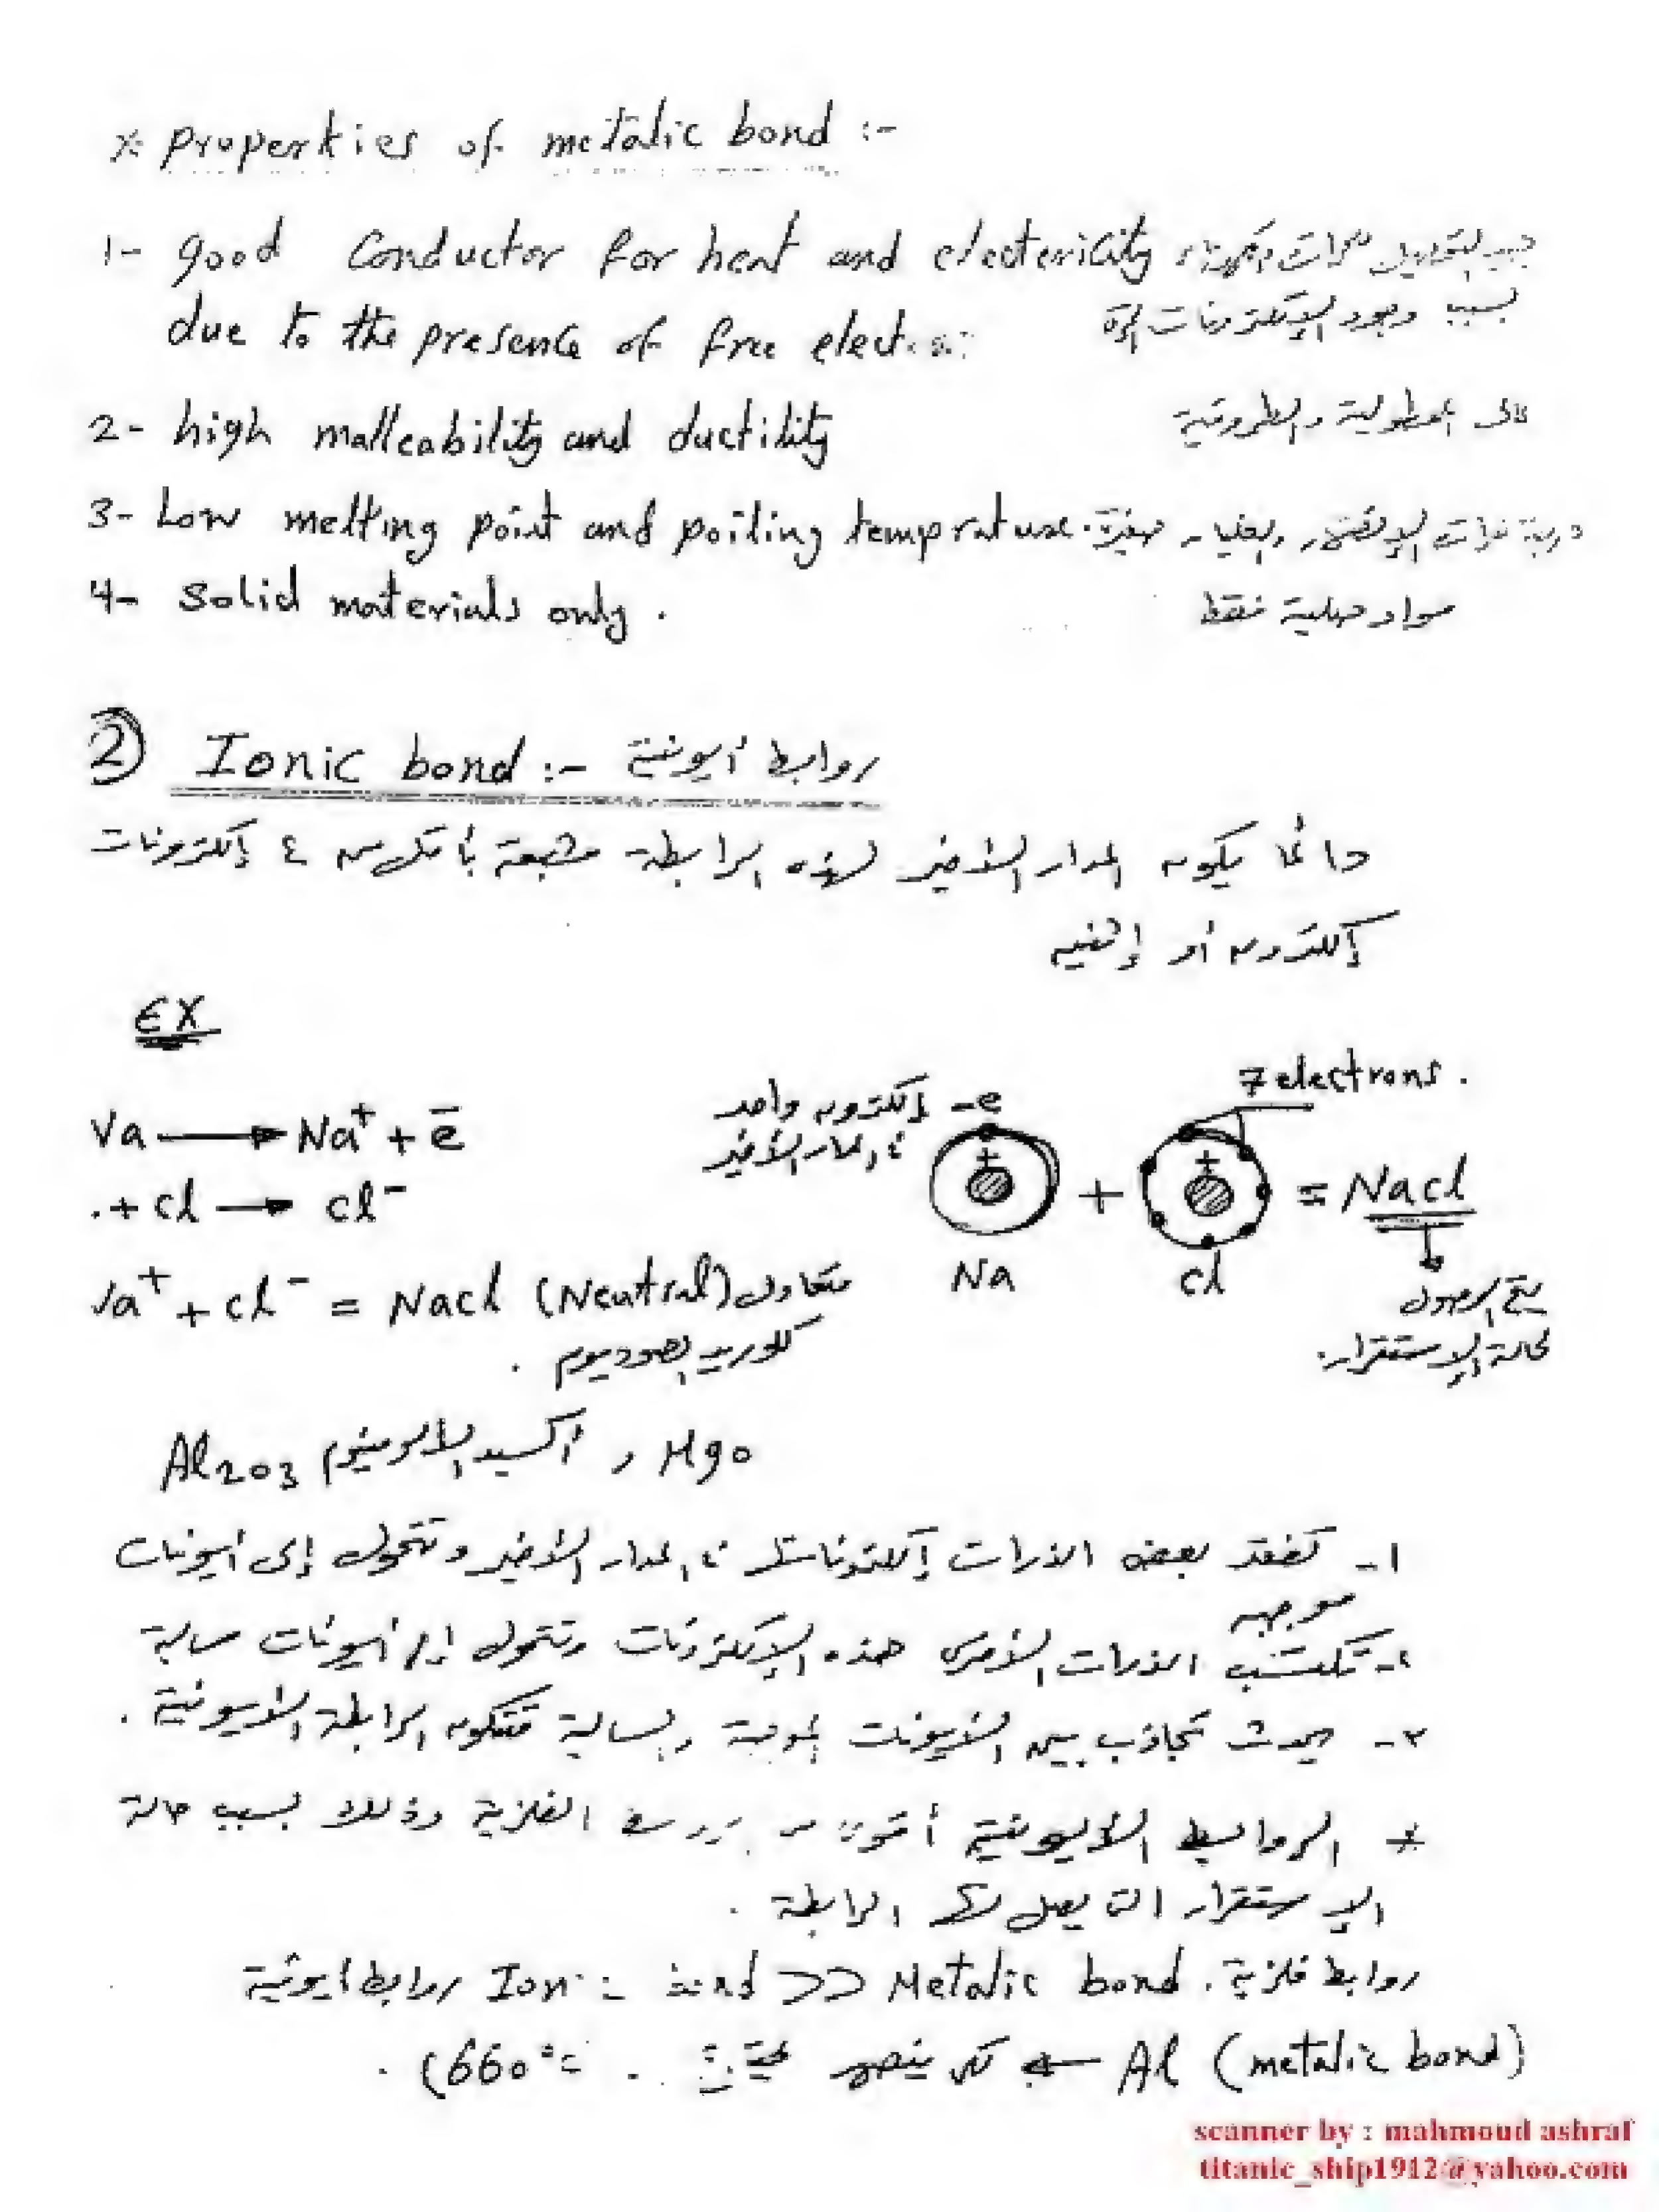 * properties of metalic bond :-
1- good Conductor for heat and electericity
due to the presence of free
بسبب وجود الإلكترونات الحرة
2- high malleability and ductility
المطولية والطروقية
3- Low melting point and poiling temprature.
4- Solid materials only .
مواد صلبة فقط
② Ionic bond :- روابط أيونية
دائما يكون المدار الأخير لهذه الرابطة مشبعة بأقل من ٤ إلكترونات
إلكترون أو إثنين
EX
Na+ + e-
+ cl → cl-
+ cl- = Nacl (Neutral) متعادل
كلوريد الصوديوم .
إلكترون واحد
في المدار الأخير
-e
7 electrons .
+ + + = Nacl
Na cl
يتم الوصول
لحالة الإستقرار.
Al2O3 أكسيد الألومنيوم , MgO
١- تفقد بعض الذرات إلكتروناتها في المدار الأخير وتتحول إلى أيونات
موجبه
٢- تكتسب الذرات الأخرى هذه الإلكترونات وتتحول إلى أيونات سالبة
٣- يحدث تجاذب بين الأيونات الموجبة والسالبة فتتكون الرابطة الأيونية .
* الروابط الأيونية أقوى من الفلزية وذلك بسبب حالة
الإستقرار التي يصل لها الرابطة .
روابط أيونية bond >> Metalic bond . روابط فلزية
Al (metalic bond) ← لكي ينصهر (660°
scanner by : mahmoud ashraf
titanic_ship1912@yahoo.com